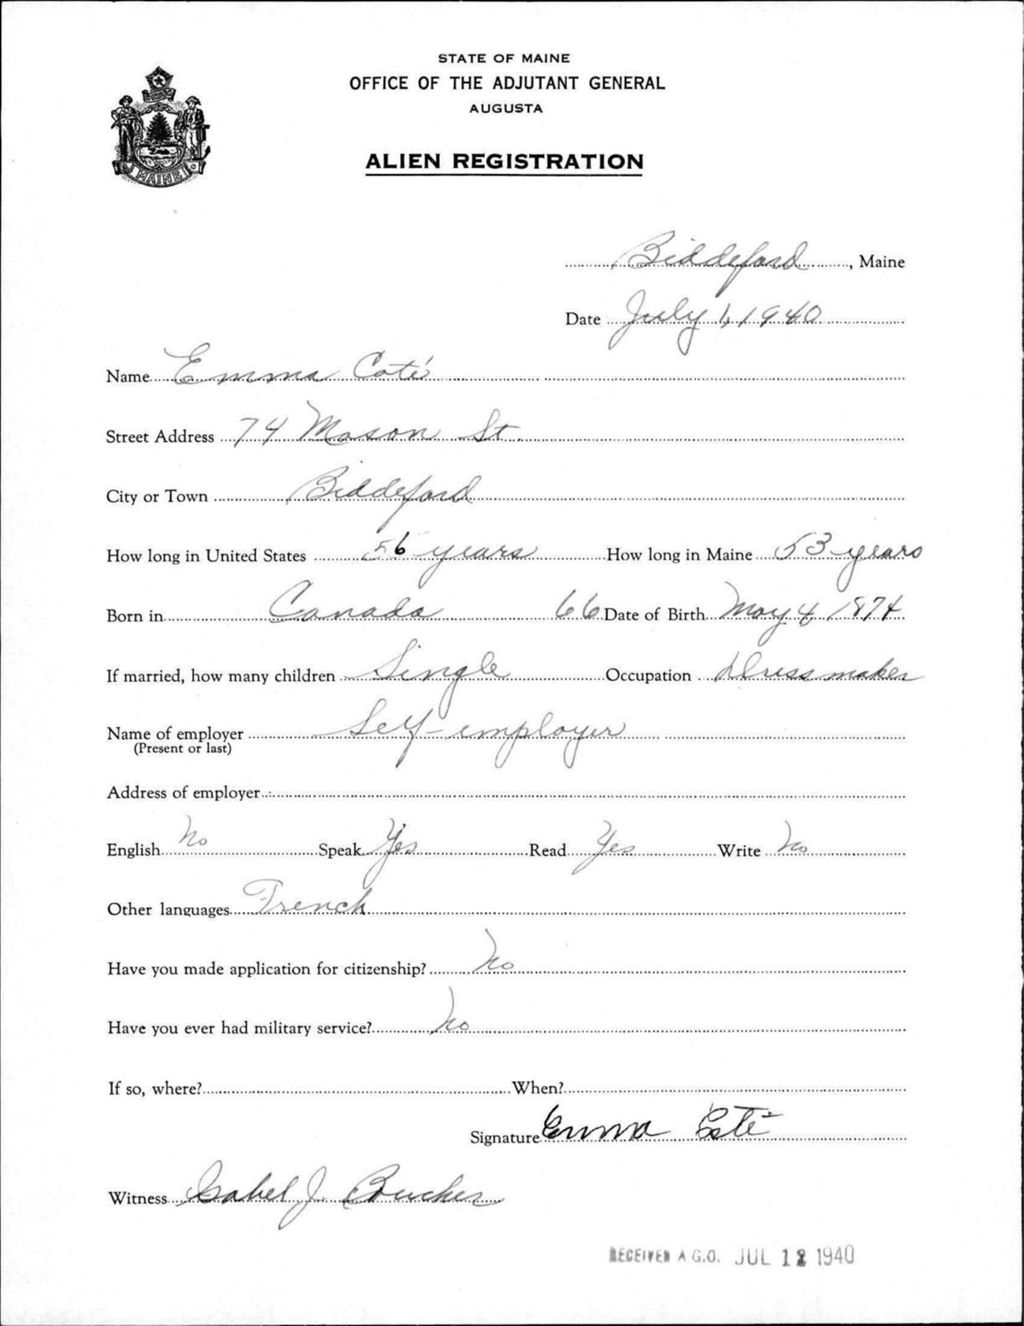 STATE OF MAINE
OFFICE OF THE ADJUTANT GENERAL
AUGUSTA
ALIEN REGISTRATION
MAINE
Biddeford, Maine
Date July 1, 1940
Name Emma Coté
Street Address 74 Mason St.
City or Town Biddeford
How long in United States 56 years How long in Maine 53 years
Born in Canada 66 Date of Birth May 4 1874
If married, how many children Single Occupation Dressmaker
Name of employer Self-employer
(Present or last)
Address of employer
English No Speak Yes Read Yes Write No
Other languages French
Have you made application for citizenship? No
Have you ever had military service? No
If so, where? When?
Signature Emma Coté
Witness Isabel J. Boucher
RECEIVED A.G.O. JUL 12 1940